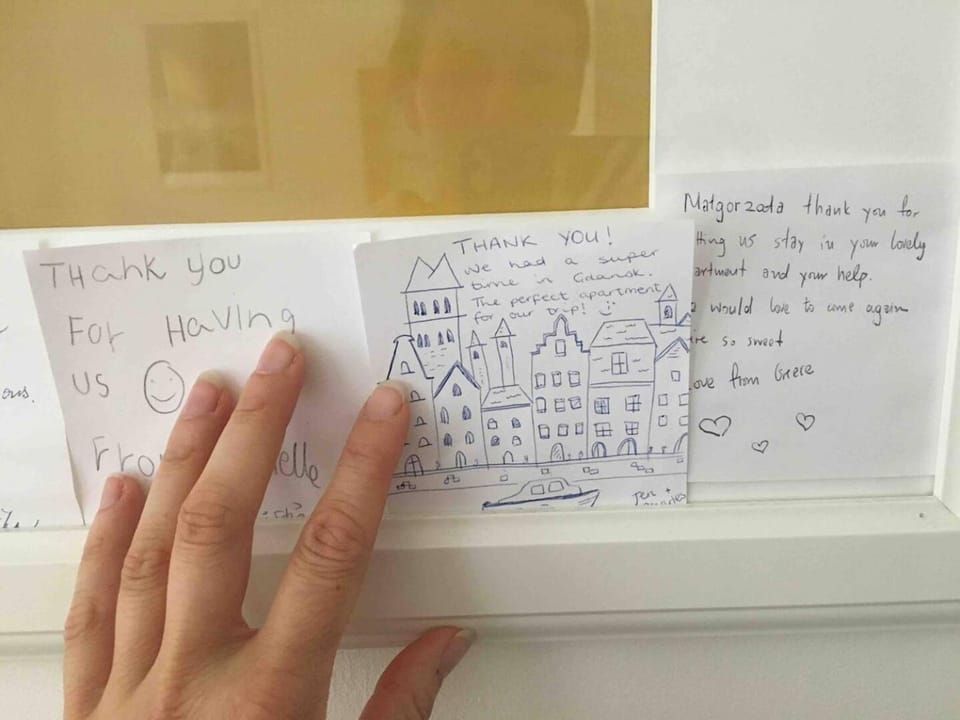 ous.
THank you
For Having
us
From
elle
THANK YOU!
We had a super
time in Gdansk.
The perfect apartment
for our trip! :)
Jen +
Małgorzata thank you for
tting us stay in your lovely
artment and your help.
would love to come again
re so sweet
Love from Greece